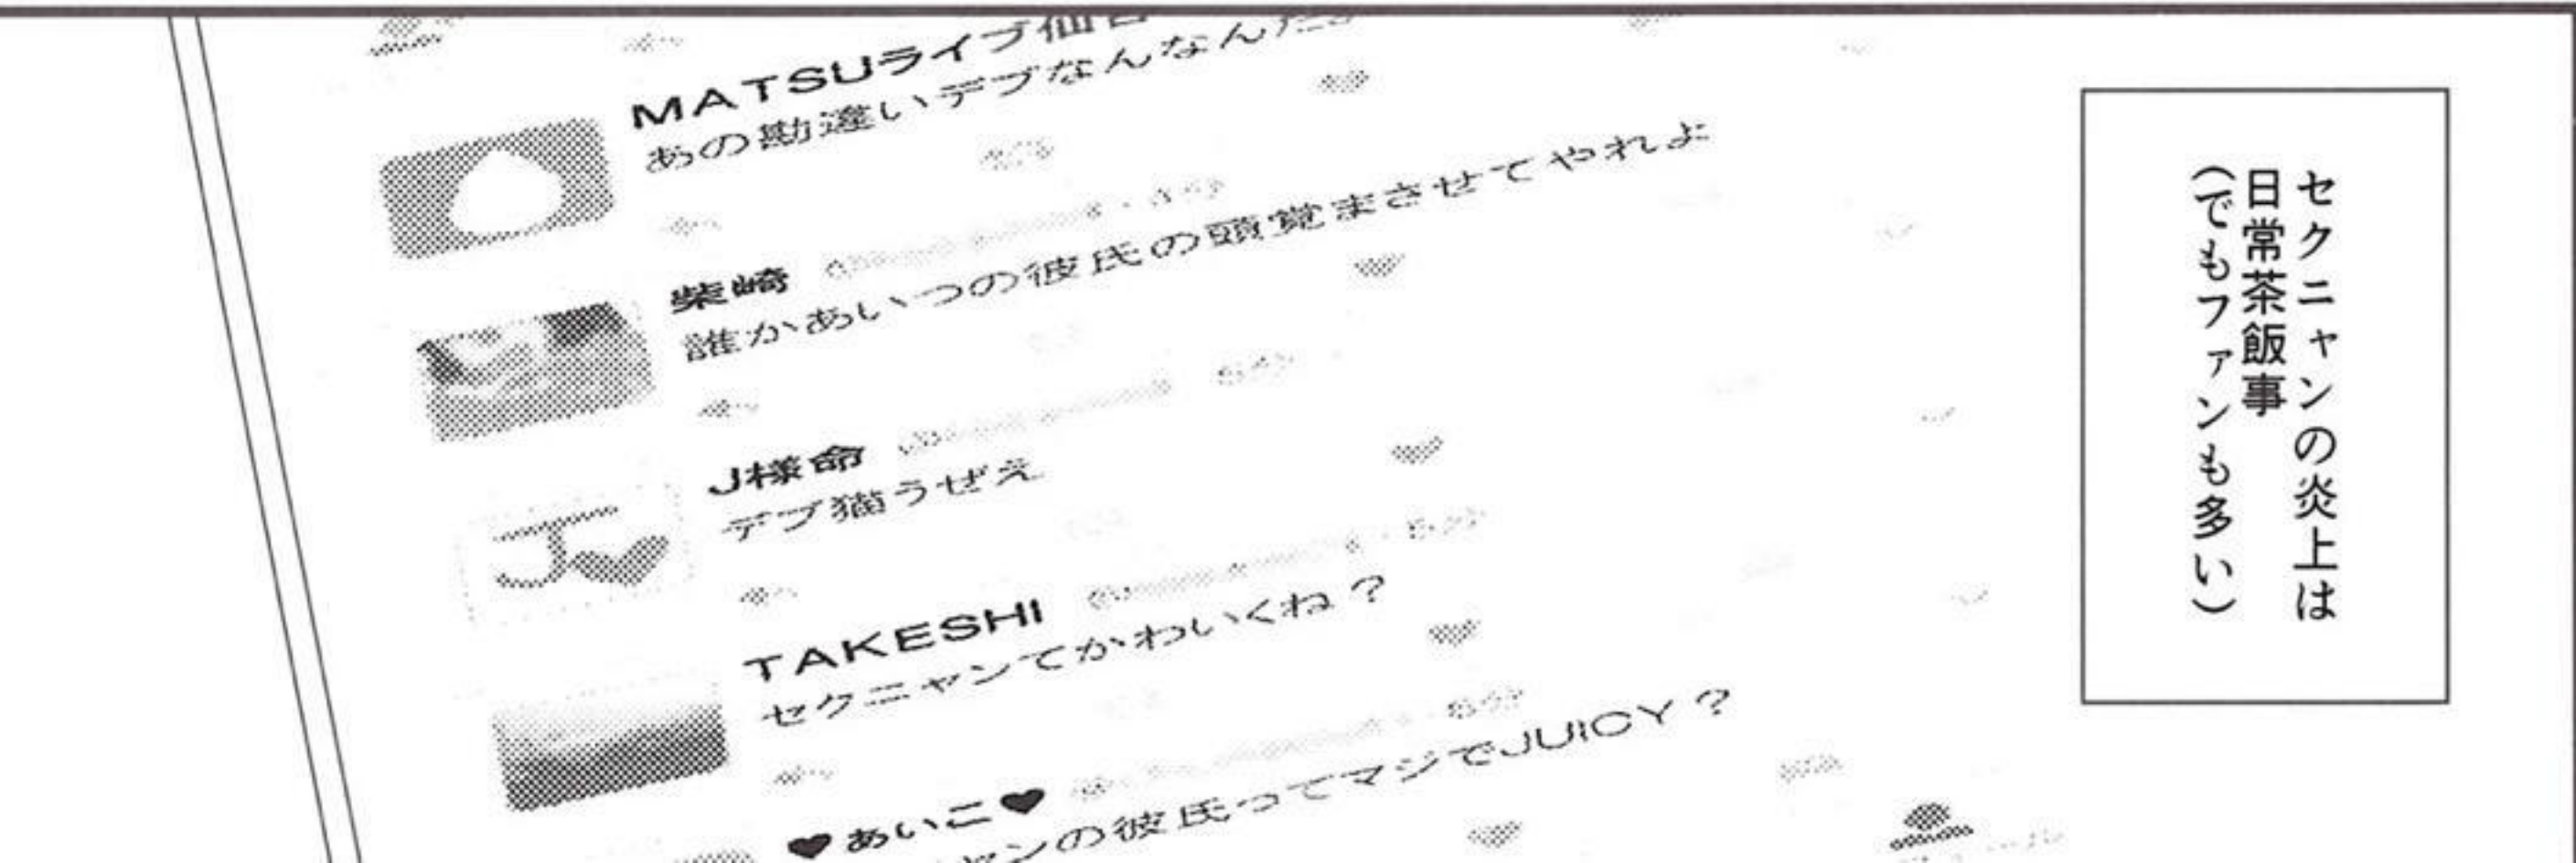 セクニャンの炎上は
日常茶飯事
（でもファンも多い）
MATSUライブ仙台
あの勘違いデブなんなんだ
柴崎
誰かあいつの彼氏の頭覚まさせてやれよ
J様命
デブ猫うぜえ
TAKESHI
セクニャンてかわいくね？
♥あいこ♥
ャンの彼氏ってマジでJUICY？